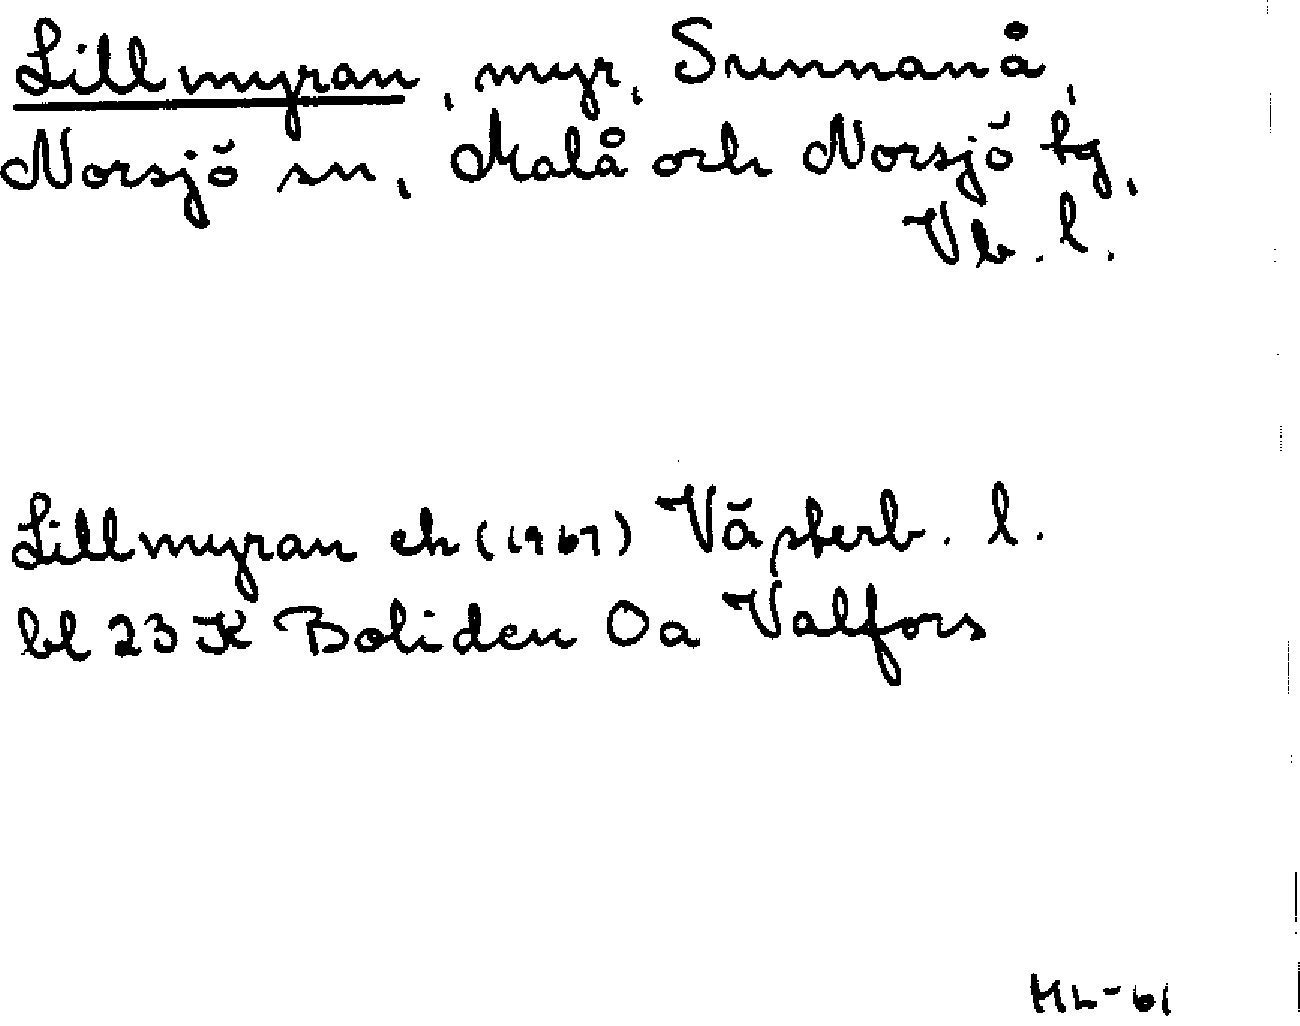 Lillmyran, myr, Sunnanå,
Norsjö sn, Malå och Norsjö tg,
Vb. l.
Lillmyran ek (1961) Västerb. l.
bl 23 K Boliden 0a Valfors
ML-61